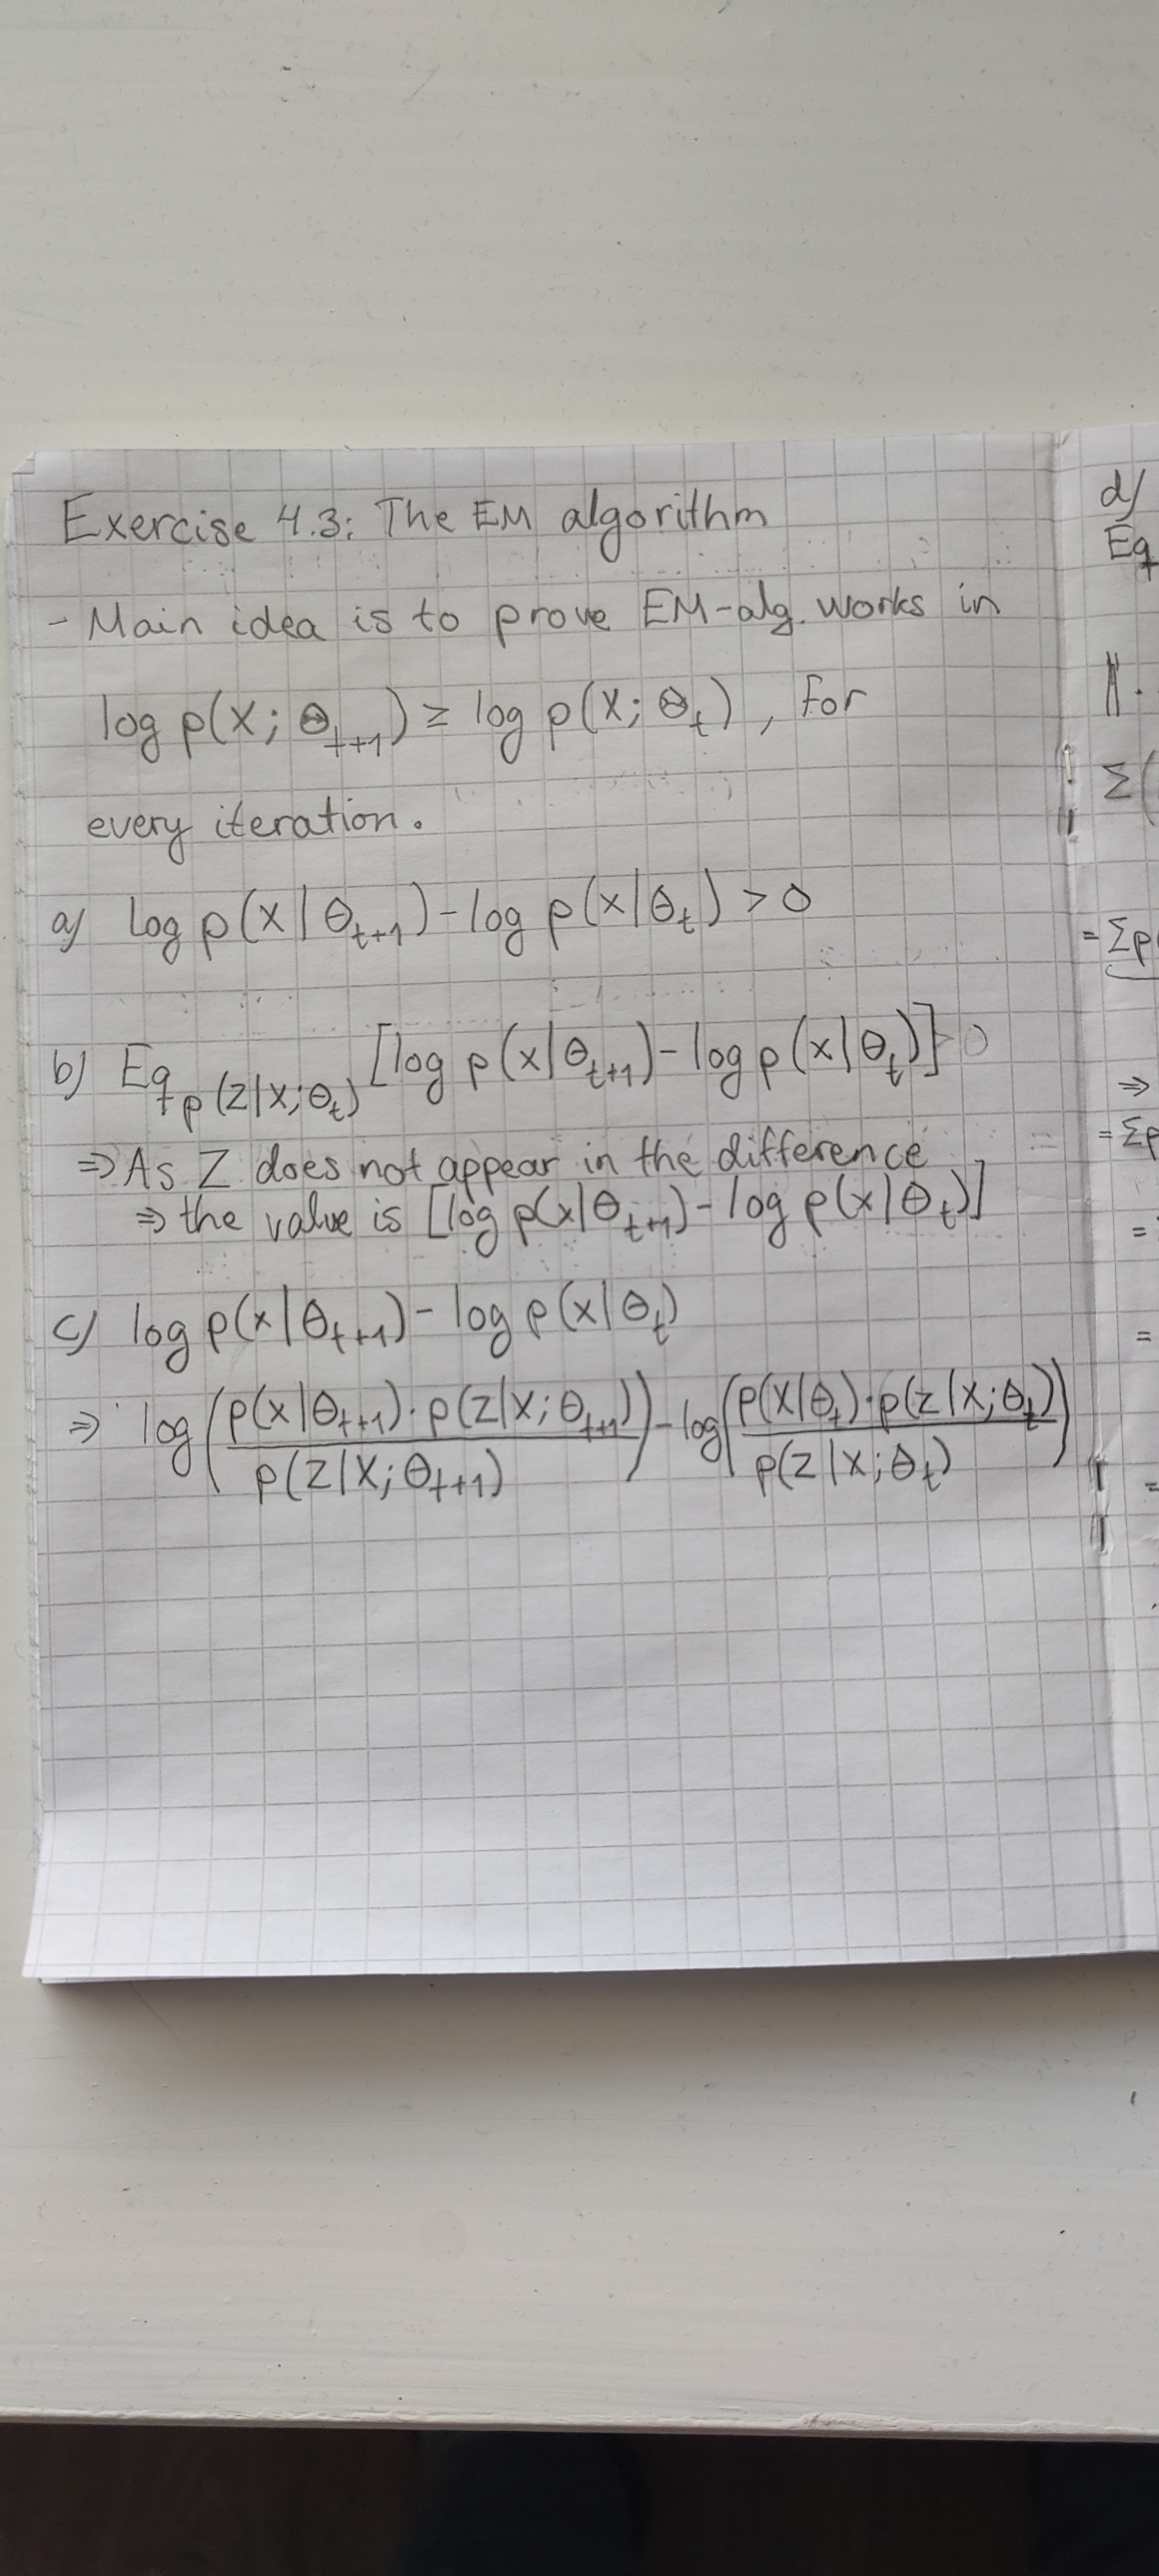 Exercise 4.3: The EM algorithm
- Main idea is to prove EM-alg. works in
log p(X; Θ_{t+1}) ≥ log p(X; Θ_t), for
every iteration.
a) log p(x|θ_{t+1}) - log p(x|θ_t) > 0
b) Eq_{p(z|x;θ_t)} [log p(x|θ_{t+1}) - log p(x|θ_t)]
⇒ As Z does not appear in the difference
⇒ the value is [log p(x|θ_{t+1}) - log p(x|θ_t)]
c) log p(x|θ_{t+1}) - log p(x|θ_t)
⇒ log(p(x|θ_{t+1}) · p(z|x;θ_{t+1}) / p(z|x;θ_{t+1})) - log(p(x|θ_t) · p(z|x;θ_t) / p(z|x;θ_t))
d)
Eq
Σ(
= Σp
⇒
= Σp
=
=
=